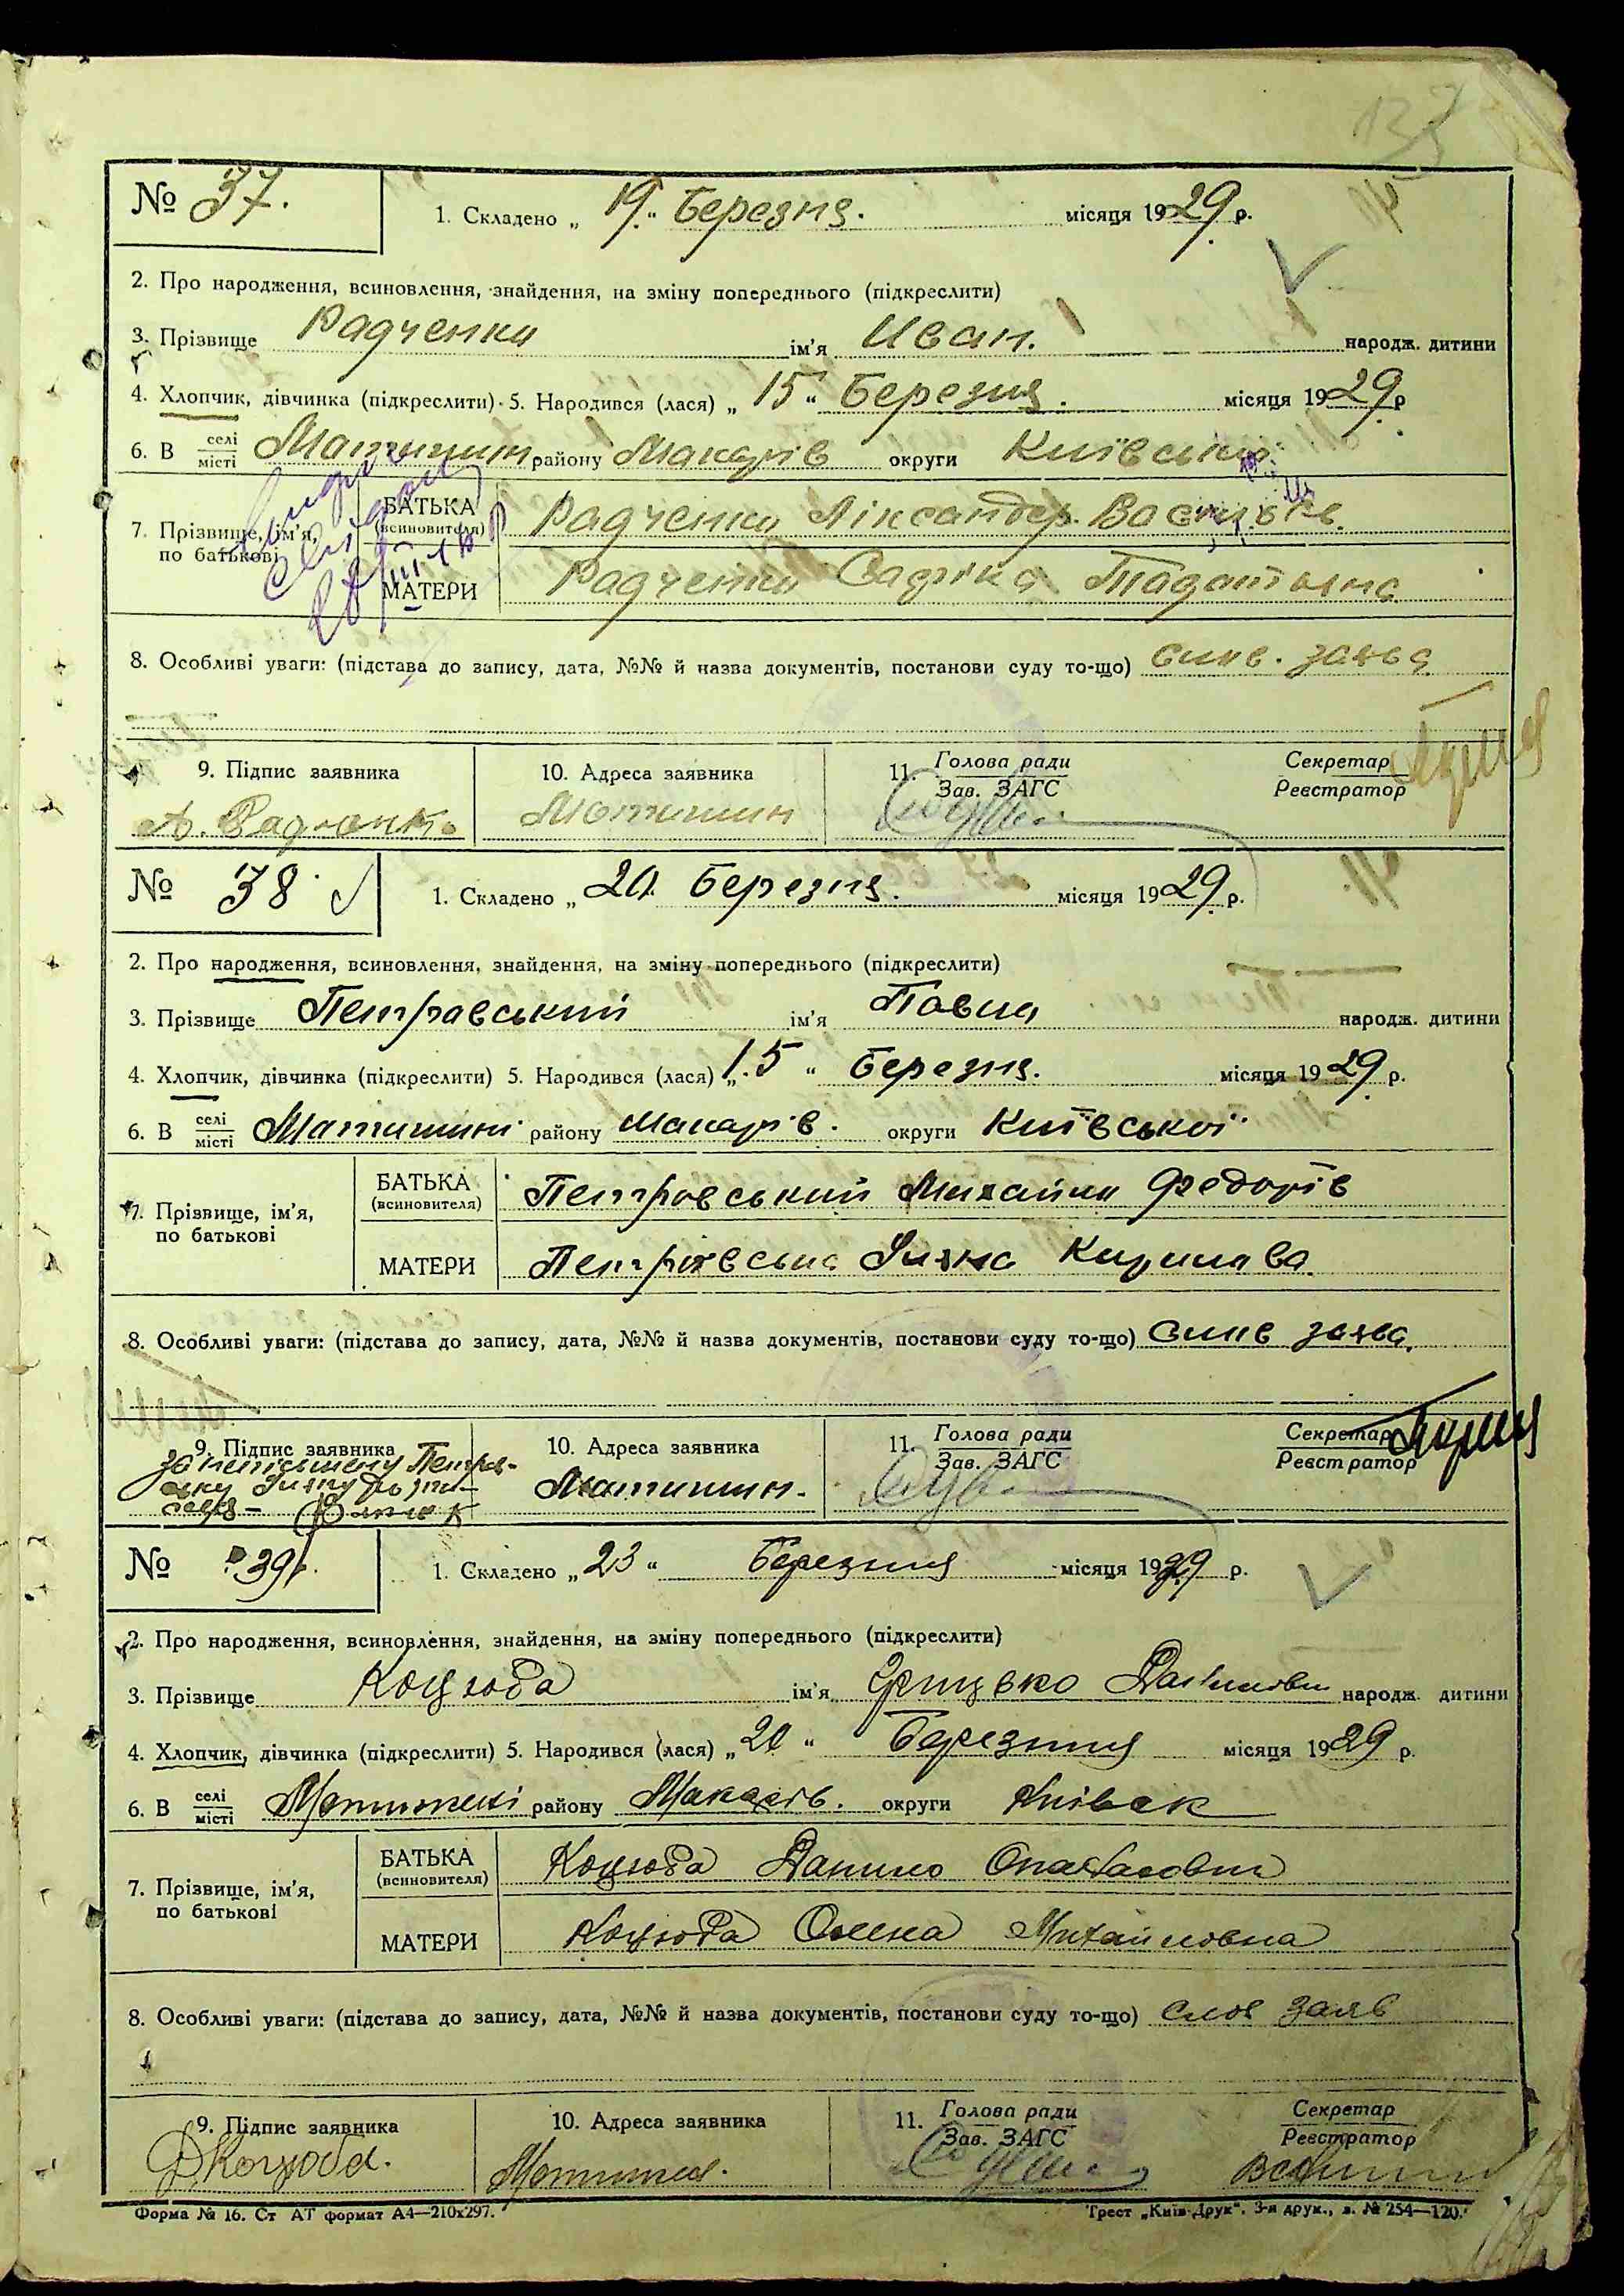 № 37.
1. Складено „ 19 “ Березня. місяця 1929 р.
2. Про народження, всиновлення, знайдення, на зміну попереднього (підкреслити)
3. Прізвище Радченко ім'я Иван. народж. дитини
4. Хлопчик, дівчинка (підкреслити) 5. Народився (лася) „ 15 “ Березня. місяця 1929 р
6. В селі місті Мотижин району Макарів округи Київської
7. Прізвище, ім'я, по батькові
БАТЬКА (всиновителя) Радченко Аіксандер Васильов.
МАТЕРИ Радченко
8. Особливі уваги: (підстава до запису, дата, №№ й назва документів, постанови суду то-що) слов. заява
9. Підпис заявника 10. Адреса заявника 11. Голова ради Зав. ЗАГС Секретар Реєстратор
А. Радченко Мотижин
№ 38
1. Складено „ 20 Березня. місяця 1929 р.
2. Про народження, всиновлення, знайдення, на зміну попереднього (підкреслити)
3. Прізвище Петровський ім'я Павло народж. дитини
4. Хлопчик, дівчинка (підкреслити) 5. Народився (лася) „ 15 “ Березня. місяця 1929 р.
6. В селі місті Мотижині району Макарів. округи Київської
7. Прізвище, ім'я, по батькові
БАТЬКА (всиновителя) Петровський Михайло Федорів
МАТЕРИ Петрівська Кирилова
8. Особливі уваги: (підстава до запису, дата, №№ й назва документів, постанови суду то-що) слов заява.
9. Підпис заявника 10. Адреса заявника 11. Голова ради Зав. ЗАГС Секретар Реєстратор
за неписьмену Мотижин.
№ 39
1. Складено „ 23 “ Березння місяця 1929 р.
2. Про народження, всиновлення, знайдення, на зміну попереднього (підкреслити)
3. Прізвище Коцюба ім'я Грицько Данилович народж. дитини
4. Хлопчик, дівчинка (підкреслити) 5. Народився (лася) „ 20 “ Березння місяця 1929 р.
6. В селі місті Мотижині району Макарів. округи Київск
7. Прізвище, ім'я, по батькові
БАТЬКА (всиновителя) Коцюба Данило Опанасович
МАТЕРИ Коцюба Олена Михайловна
8. Особливі уваги: (підстава до запису, дата, №№ й назва документів, постанови суду то-що) слов заяв
9. Підпис заявника 10. Адреса заявника 11. Голова ради Зав. ЗАГС Секретар Реєстратор
Д Коцюба. Мотижин.
Форма № 16. Ст АТ формат А4—210х297. Трест „Київ-Друк“. 3-я друк., з. № 254—120.